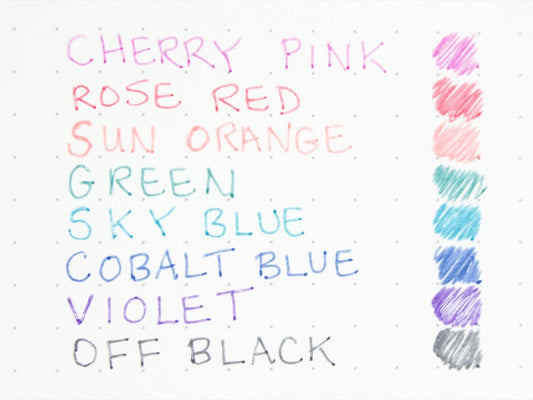 CHERRY PINK
ROSE RED
SUN ORANGE
GREEN
SKY BLUE
COBALT BLUE
VIOLET
OFF BLACK